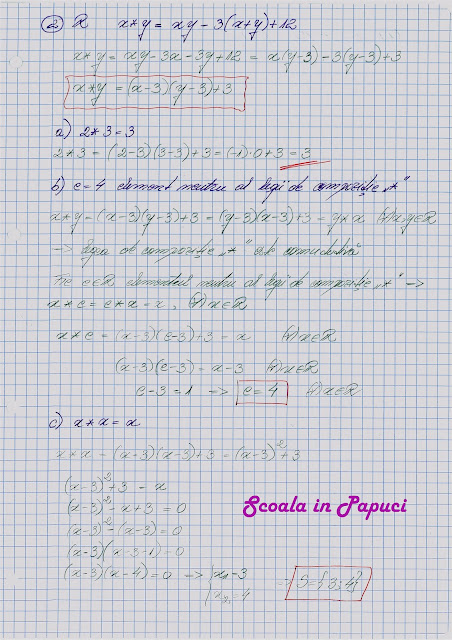 ② R x*y = xy - 3(x+y)+12
x*y = xy-3x-3y+12 = x(y-3)-3(y-3)+3
x*y = (x-3)(y-3)+3
a) 2*3=3
2*3 = (2-3)(3-3)+3 = (-1)·0+3 = 3
b) e=4 element neutru al legii de compoziție „*”
x*y = (x-3)(y-3)+3 = (y-3)(x-3)+3 = y*x (∀)x,y∈R
-> legea de compoziție „*” este comutativă
Fie e∈R elementul neutru al legii de compoziție „*” ->
x*e = e*x = x, (∀)x∈R
x*e = (x-3)(e-3)+3 = x (∀)x∈R
(x-3)(e-3) = x-3 (∀)x∈R
e-3 = 1 => e=4 (∀)x∈R
c) x*x = x
x*x = (x-3)(x-3)+3 = (x-3)²+3
(x-3)²+3 = x
(x-3)²-x+3 = 0
Scoala in Papuci
(x-3)²-(x-3) = 0
(x-3)(x-3-1) = 0
(x-3)(x-4) = 0 => x₁=3 => S={3;4}
x₂=4